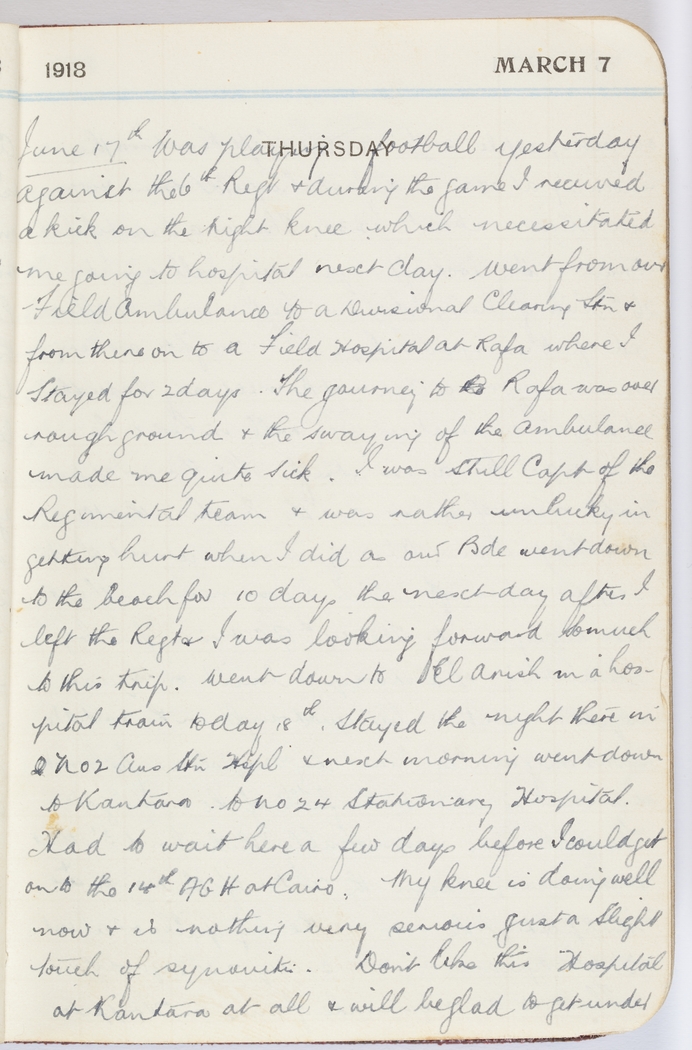 1918
MARCH 7
THURSDAY
June 17th Was playing football yesterday
against the 6th Regt & during the game I received
a kick on the right knee which necessitated
me going to hospital next day. Went from our
Field Ambulance to a Divisional Clearing Stn &
from there on to a Field Hospital at Rafa where I
Stayed for 2 days. The journey to Rafa was over
rough ground & the swaying of the Ambulance
made me quite sick. I was still Capt of the
Regimental team & was rather unlucky in
getting hurt when I did as our Bde went down
to the beach for 10 days the next day after I
left the Regt & I was looking forward so much
to this trip. Went down to El Arish in a hos-
pital train today 18th. Stayed the night there in
No 2 Aus Stn Hspl & next morning went down
to Kantara. to no 24 Stationary Hospital.
Had to wait here a few days before I could get
on to the 14th AGH at Cairo. My knee is doing well
now & is nothing very serious just a slight
touch of synovitis. Don't like this Hospital
at Kantara at all & will be glad to get under